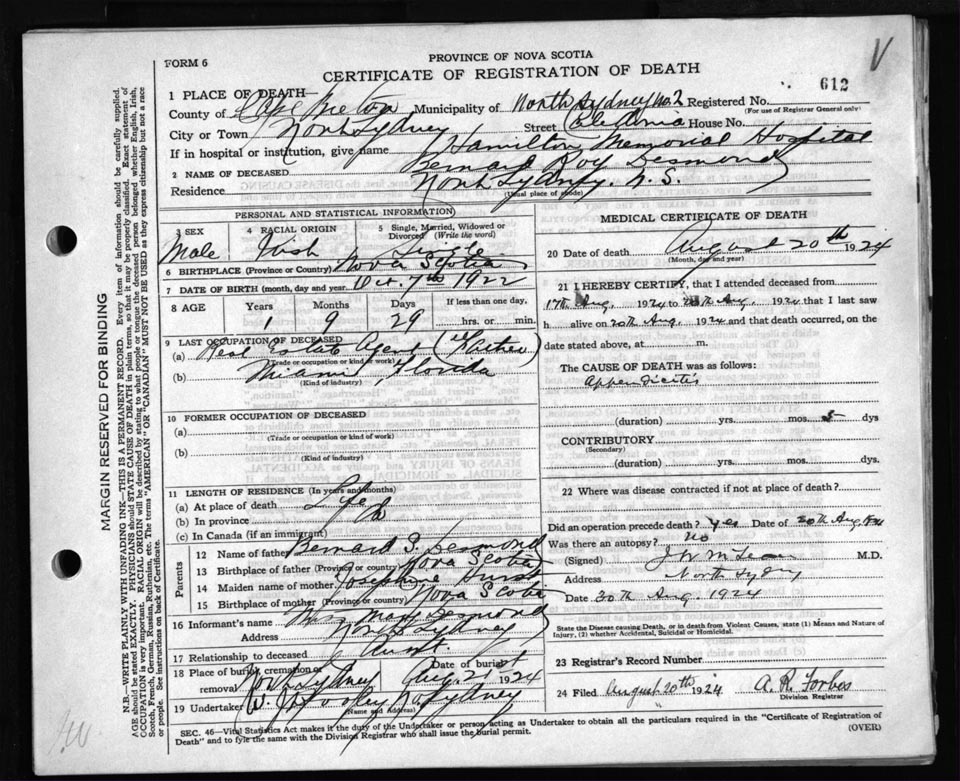 FORM 6
PROVINCE OF NOVA SCOTIA
CERTIFICATE OF REGISTRATION OF DEATH
612
1 PLACE OF DEATH
County of Cape Breton Municipality of North Sydney No. 2 Registered No.
(For use of Registrar General only)
City or Town North Sydney Street Caledonia House No.
If in hospital or institution, give name Hamilton Memorial Hospital
2 NAME OF DECEASED Bernard Roy Desmond
Residence North Sydney. N. S.
(Usual place of abode)
PERSONAL AND STATISTICAL INFORMATION
3 SEX
Male
4 RACIAL ORIGIN
Irish
5 Single, Married, Widowed or Divorced (Write the word)
Single
6 BIRTHPLACE (Province or Country) Nova Scotia
7 DATE OF BIRTH (month, day and year) Oct. 7th 1922
8 AGE
Years Months Days If less than one day,
1 9 29 hrs. or min.
9 LAST OCCUPATION OF DECEASED
(a) Real Estate Agent (Father)
(Trade or occupation or kind of work)
(b) Miami, Florida
(Kind of industry)
10 FORMER OCCUPATION OF DECEASED
(a)
(Trade or occupation or kind of work)
(b)
(Kind of industry)
11 LENGTH OF RESIDENCE (In years and months)
(a) At place of death Life
(b) In province
(c) In Canada (if an immigrant)
Parents
12 Name of father Bernard J. Desmond
13 Birthplace of father (Province or country) Nova Scotia
14 Maiden name of mother Josephine
15 Birthplace of mother (Province or country) Nova Scotia
16 Informant's name Mary Desmond
Address North Sydney
17 Relationship to deceased Aunt.
18 Place of burial, cremation or removal North Sydney
Date of burial Aug. 21st 1924
19 Undertaker W. J. Dooley No. Sydney
(Name and Address)
MEDICAL CERTIFICATE OF DEATH
20 Date of death August 20th 1924
(Month, day and year)
21 I HEREBY CERTIFY, that I attended deceased from
17th Aug, 1924 to 20th Aug, 1924 that I last saw
h alive on 20th Aug, 1924 and that death occurred, on the
date stated above, at m.
The CAUSE OF DEATH was as follows:
Appendicitis
(duration) yrs. mos. 5 dys
CONTRIBUTORY
(Secondary)
(duration) yrs. mos. dys.
22 Where was disease contracted if not at place of death?
Did an operation precede death? Yes Date of 20th Aug 1924
Was there an autopsy? No
(Signed) J W McLean M.D.
Address North Sydney
Date 30th Aug. 1924
State the Disease causing Death, or in death from Violent Causes, state (1) Means and Nature of
Injury, (2) whether Accidental, Suicidal or Homicidal.
23 Registrar's Record Number
24 Filed August 20th 1924 A. R. Forbes
Division Registrar
SEC. 46—Vital Statistics Act makes it the duty of the Undertaker or person acting as Undertaker to obtain all the particulars required in the "Certificate of Registration of
Death" and to fyle the same with the Division Registrar who shall issue the burial permit.
(OVER)
MARGIN RESERVED FOR BINDING
N.B.—WRITE PLAINLY WITH UNFADING INK—THIS IS A PERMANENT RECORD. Every item of information should be carefully supplied.
AGE should be stated EXACTLY. PHYSICIANS should STATE CAUSE OF DEATH in plain terms, so that it may be properly classified. Exact statement of
OCCUPATION is very important. RACIAL ORIGIN will be described by stating to what people or tongue the deceased person belonged whether English, Irish,
Scotch, French, German, Russian, Ruthenian, etc. The terms "AMERICAN" OR "CANADIAN" MUST NOT BE USED as they express citizenship but not a race
or people. See instructions on back of Certificate.